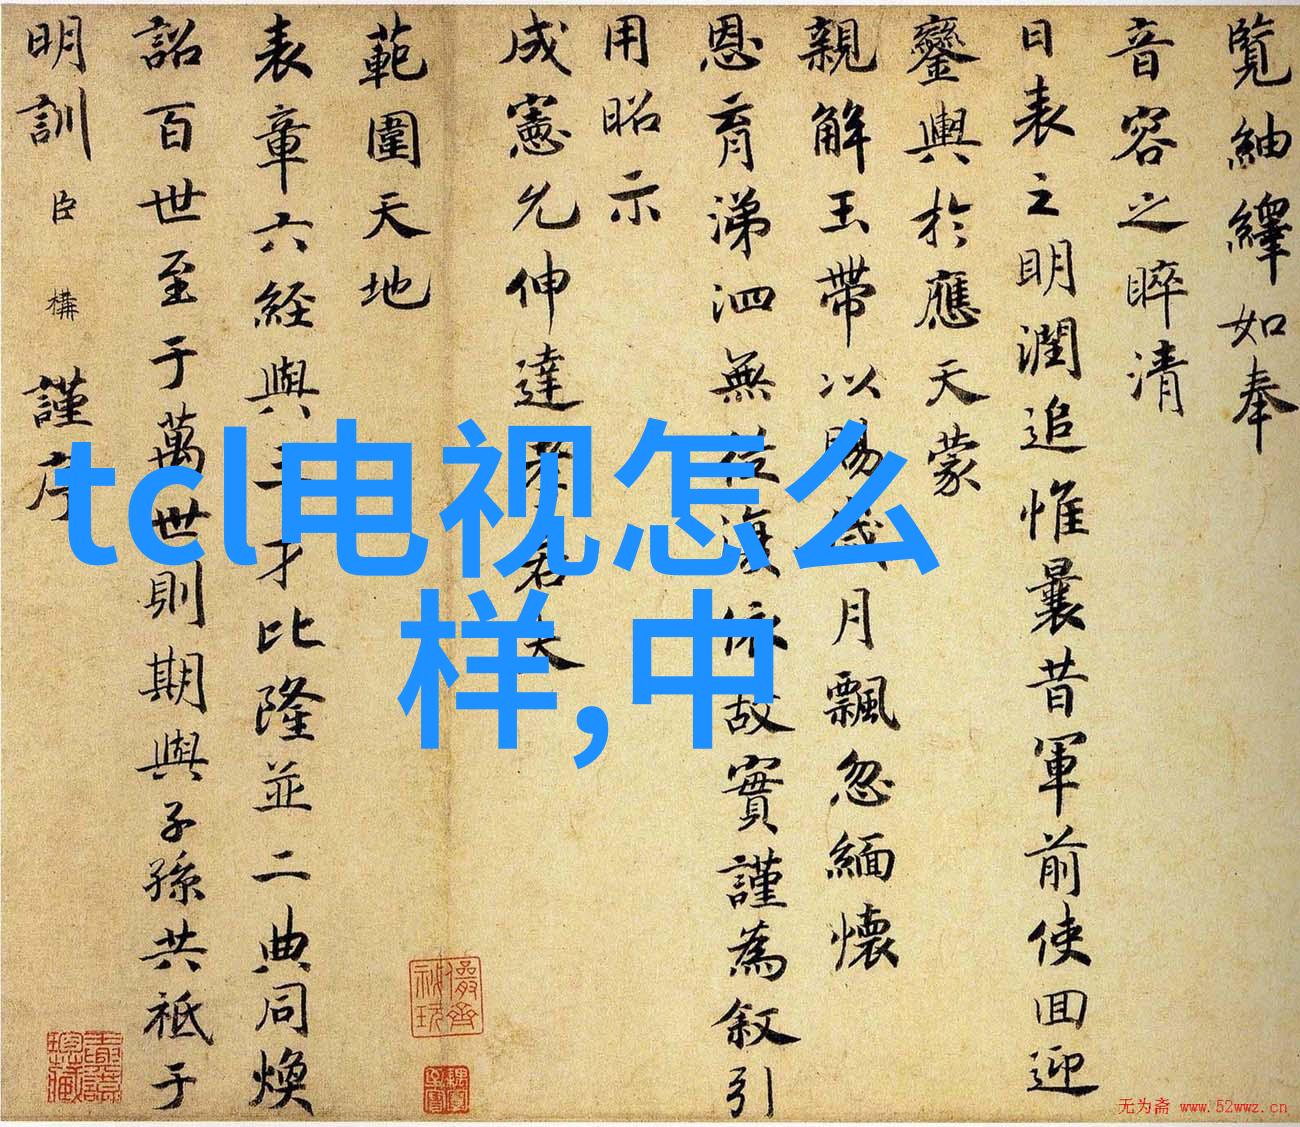 覧紬繹如奉
音容之睟清
日表之明潤追惟曩昔軍前使回迎
鑾輿於應天蒙
親解玉帶以賜歲月飄忽緬懷
恩育涕泗無從復依故實謹為叙引
用昭示
成憲允伸達孝君夫
範圍天地
表章六経與三才比隆並二典同煥
詔百世至于萬世則期與子孫共祗于
明訓臣構謹序
tcl电视怎么
样,中
无为斋 www.52wwz.cn